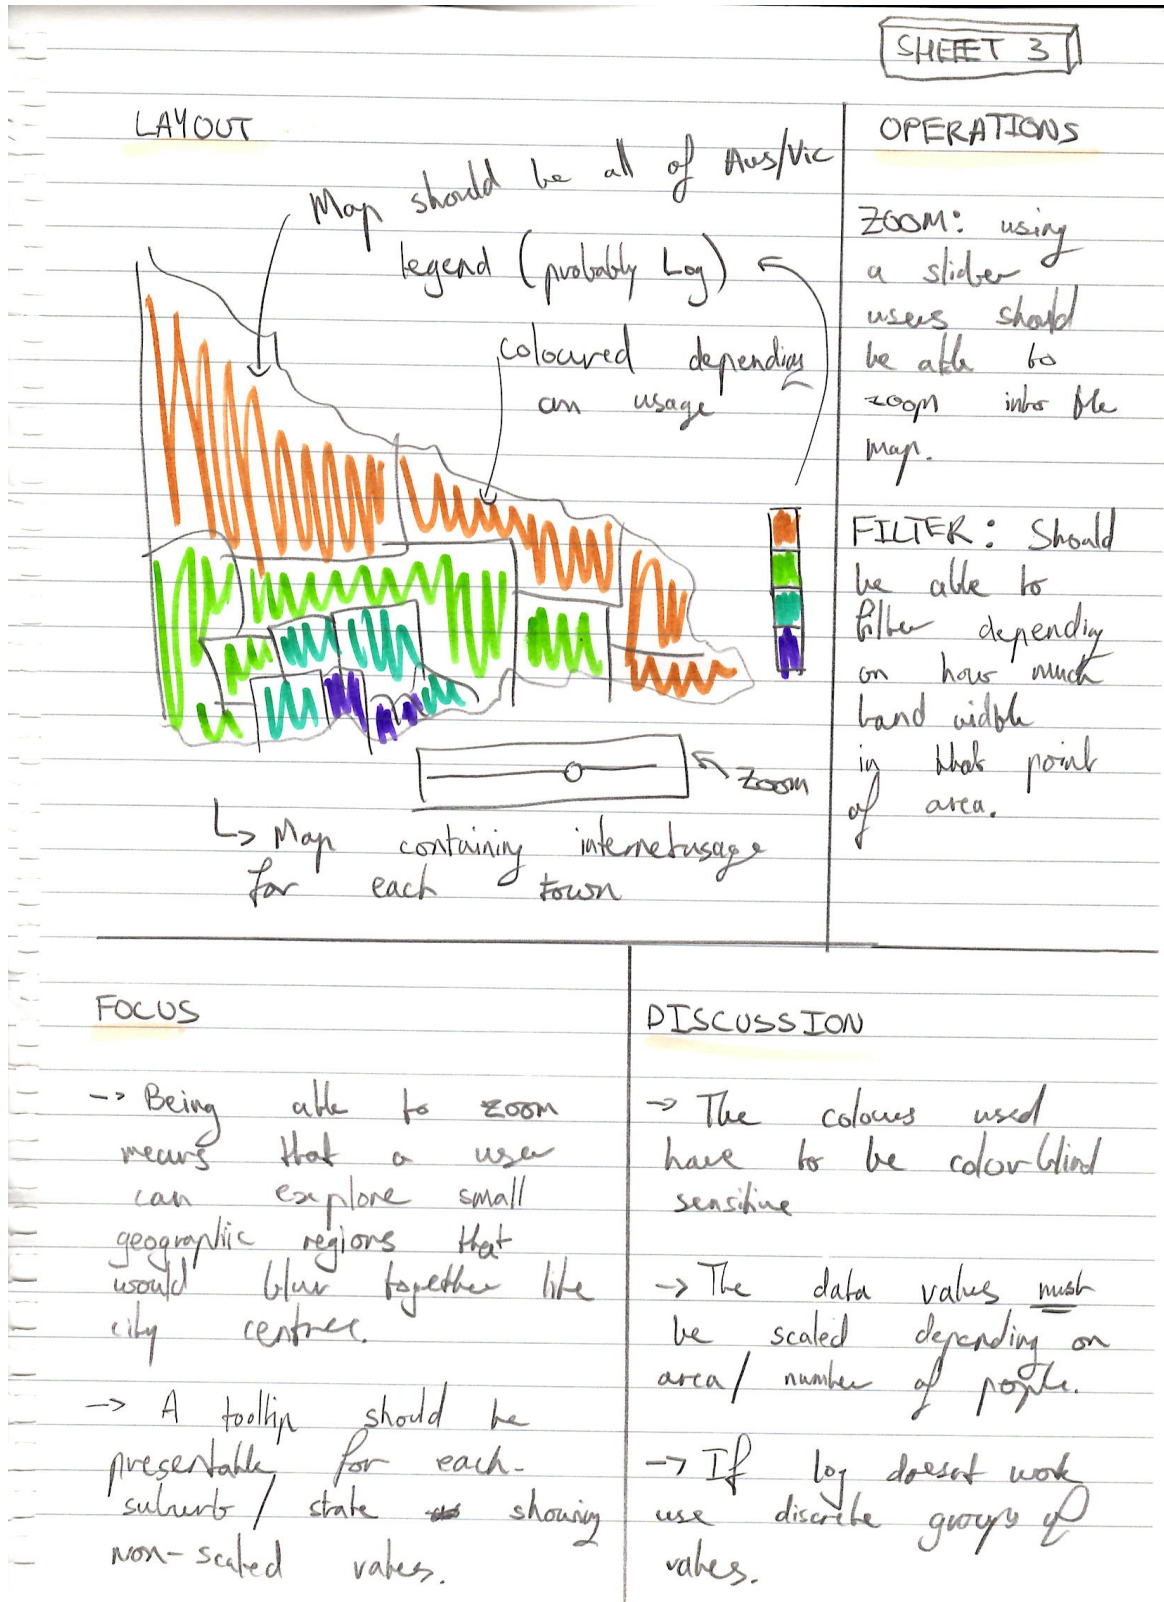 SHEEET 3
LAYOUT
Map should be all of Aus/Vic
legend (probably Log)
coloured depending
on usage
Zoom
↳ Map containing internet usage
for each town
OPERATIONS
ZOOM: using
a slider
users should
be able to
zoom into the
map.
FILTER: Should
be able to
filter depending
on how much
band width
in that point
of area.
FOCUS
-> Being able to zoom
means that a user
can explore small
geographic regions that
would blur together like
city centres.
-> A tooltip should be
presentable for each
suburb / state showing
non-scaled values.
DISCUSSION
-> The colours used
have to be colour blind
sensitive
-> The data values must
be scaled depending on
area / number of people.
-> If log doesnt work
use discrete groups of
values.